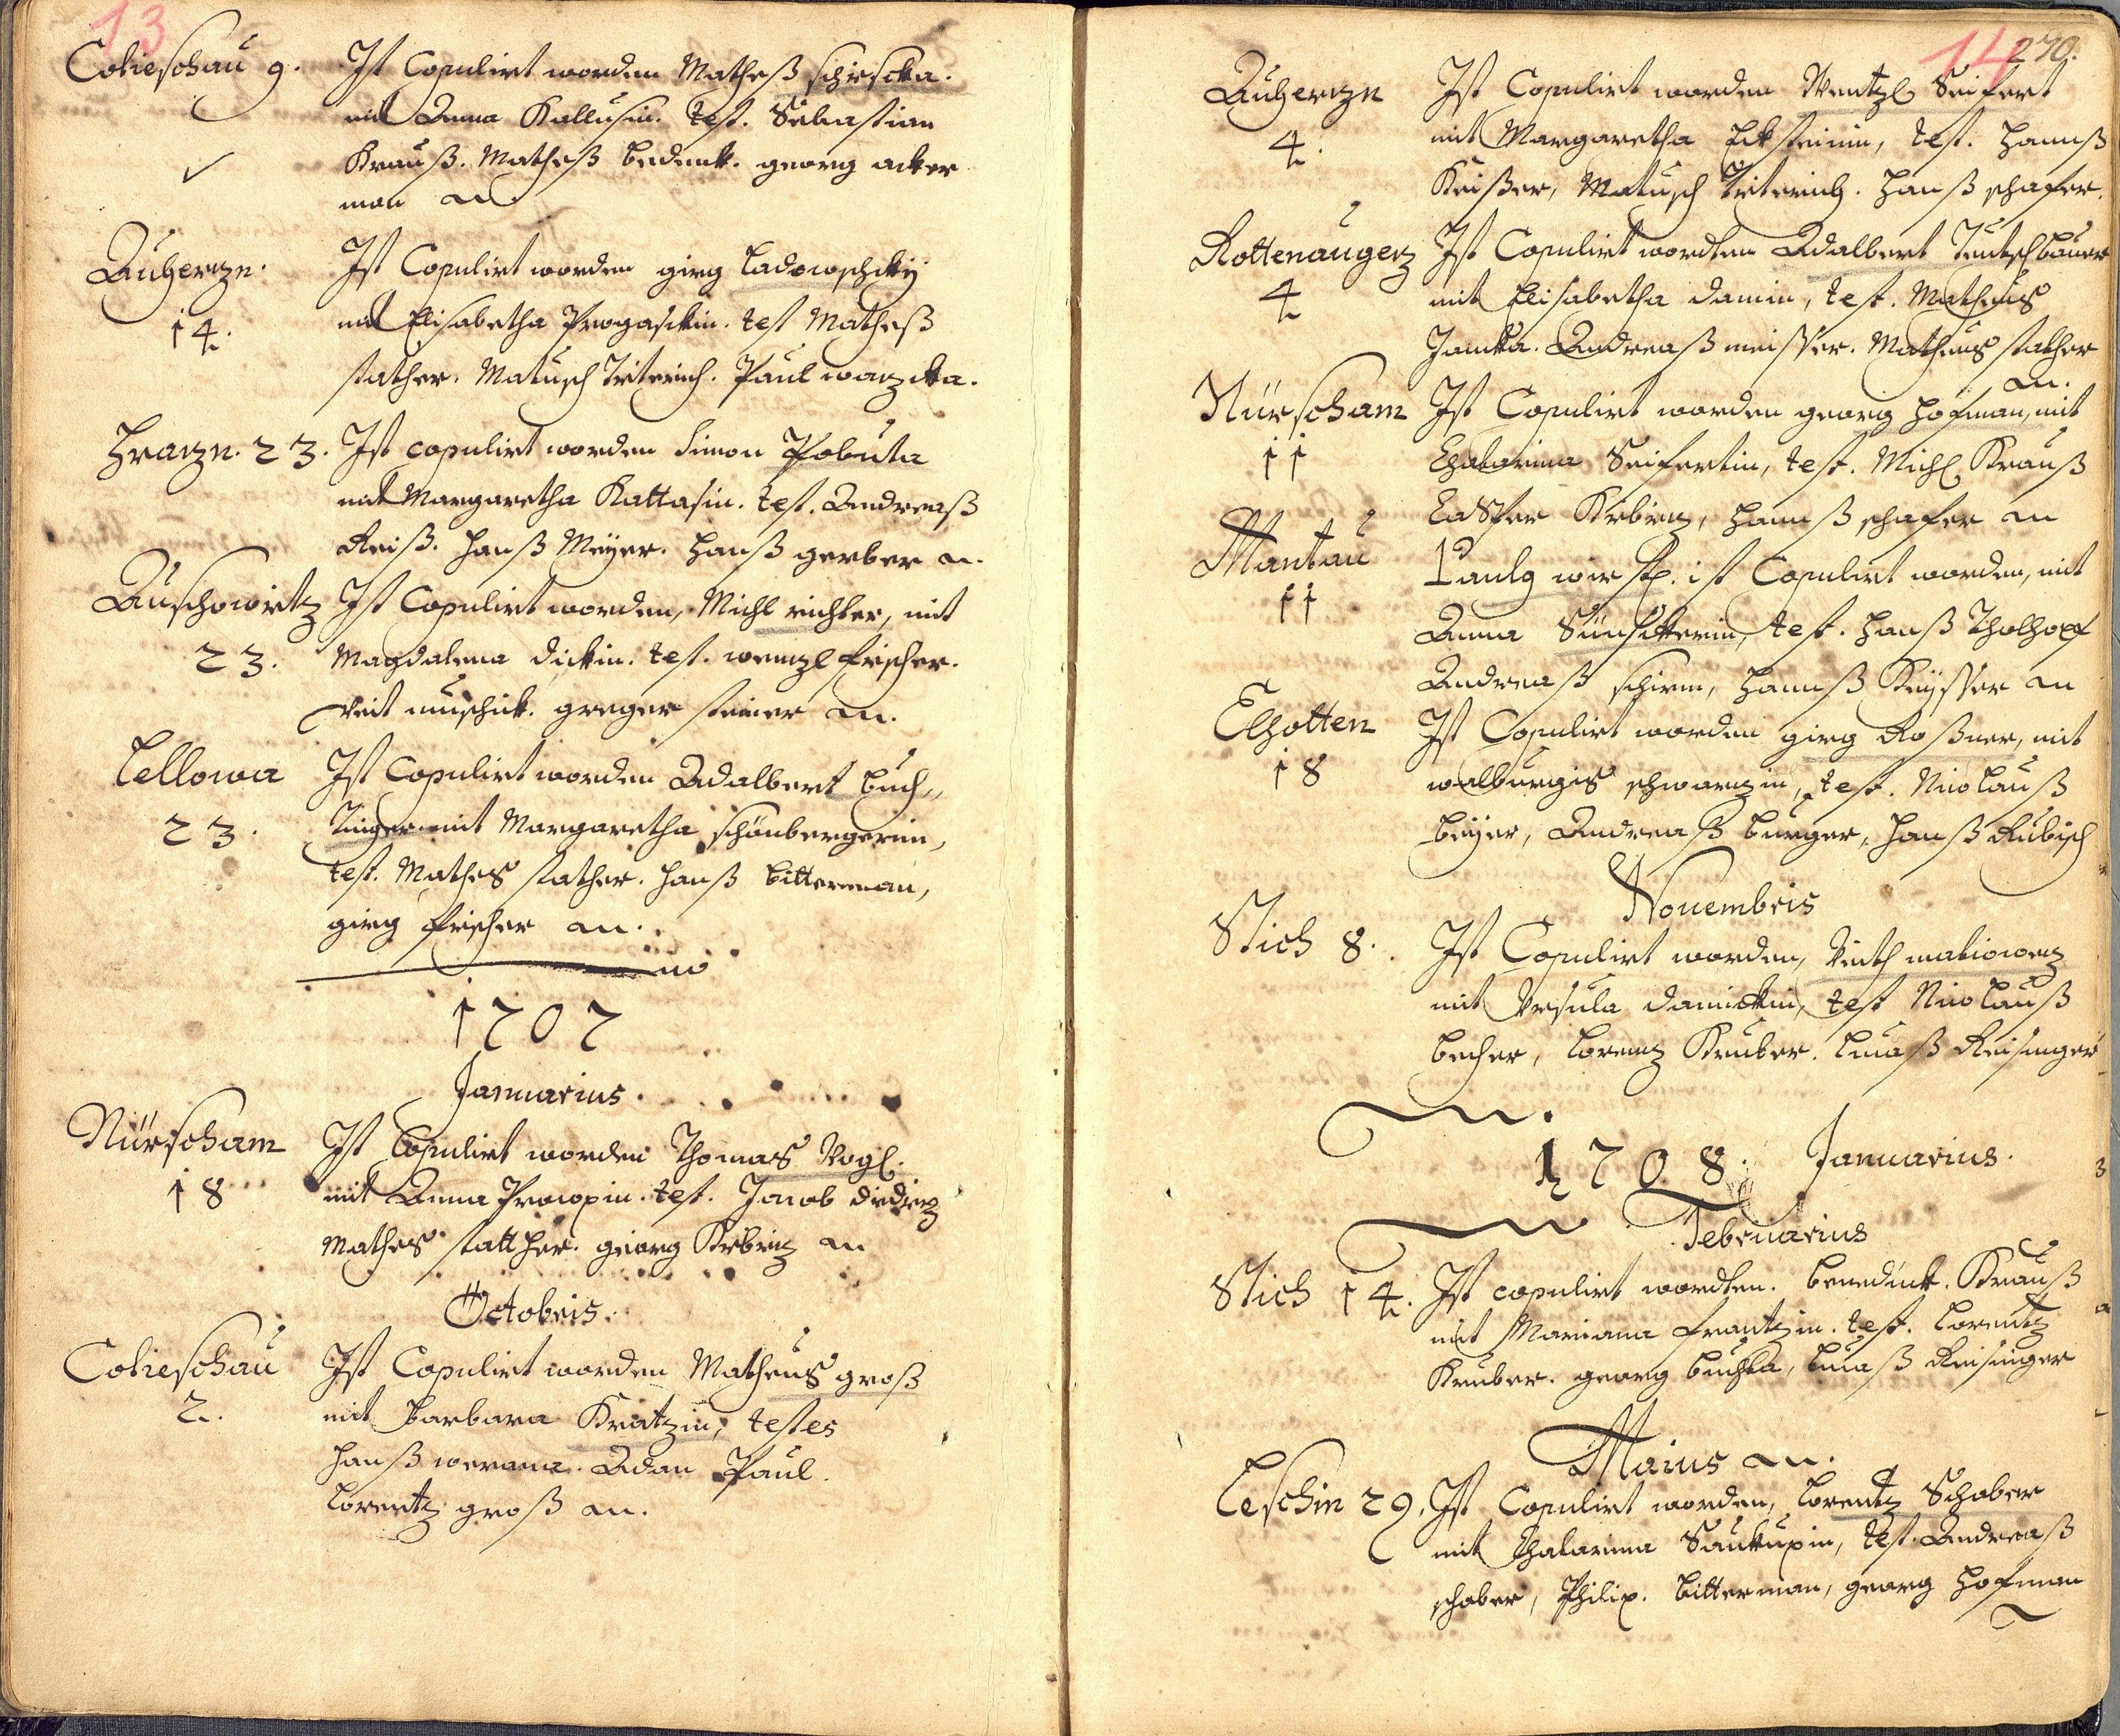 13
Cotieschau 9. Ist Copulirt worden Matheß schescka.
mit Anna Kallusin. test. Sebastian
Krauß. Matheß bedenk. georg acker
man
Auherzn. Ist Copulirt worden girg Ladowschkÿ
14. mit Elisabetha Progasckin. test Matheß
stather. Matusch Triterich. Paul warzcka.
Hrarzn. 23. Ist copulirt worden Simon Pobuta
mit Margaretha Kattasin. test. Andreaß
Reiß. Hanß Meÿer. Hanß gerber
Auschowitz Ist Copulirt worden, Michl richter, mit
23. Magdalena dickin. test. wenzl fischer.
veit muschick. greger steiner
Lellowa Ist Copulirt worden Adalbert buch„
23. Tinger. mit Margaretha schönbergerin,
test. Mathes stather. Hanß bitterman,
girg fischer
1707
Januarius.
Nürscham Ist Copulirt worden Thomas Vogl.
18 mit Anna Procopin. test. Jacob diedietz
Mathes statther. georg Kebrig
Octobris.
Cotieschau Ist Copulirt worden Matheus groß
2. mit barbara Kratzin, testes
Hanß werana. Adan Paul.
Lorentz groß
14 270.
Auherzn Ist Copulirt worden Wentzl Seifert
4. mit Margaretha Ecksteinin, test. Hannß
Keißer, Matusch Triterich. Hanß schafer.
Rottenaugez Ist Copulirt wordten Adalbert Teutschbauer
4 mit Elisabetha damin, test. Matheus
Jancka. Andreaß meisser. Matheus stather
Nürscham Ist Copulirt worden georg Hofman, mit
11 Chatarina Seifertin, test. Michl Krauß
CaSper Kebrig, Hannß schafer
Mantau Paulg wirst. ist Copulirt worden, mit
11 Anna Sünsckerin, test. Hanß Tholhopf
Andreaß schirm, Hannß Keÿsser
Elhotten Ist Copulirt worden girg Roßner, mit
18 walburgis schwarzin, test. Nicolauß
beÿer, Andreaß burger, Hanß Rubisch
Nouembris
Stich 8. Ist Copulirt worden, Veith matiowez
mit Vrsula damickin, test Nicolauß
becher, Lorenz Kruber. Lucaß Reisinger
1708. Januarius.
Februarius
Stich 14. Ist copulirt wordten. benedickt. Krauß
mit Mariana frantzin. test. Lorentz
Kruber. georg buchka, Lucaß Reisinger
Maius
Leschin 29. Ist Copulirt worden, Lorentz Schober
mit Chatarina Saukupin, test. Andreaß
schober, Philip. bitterman, georg Hofman